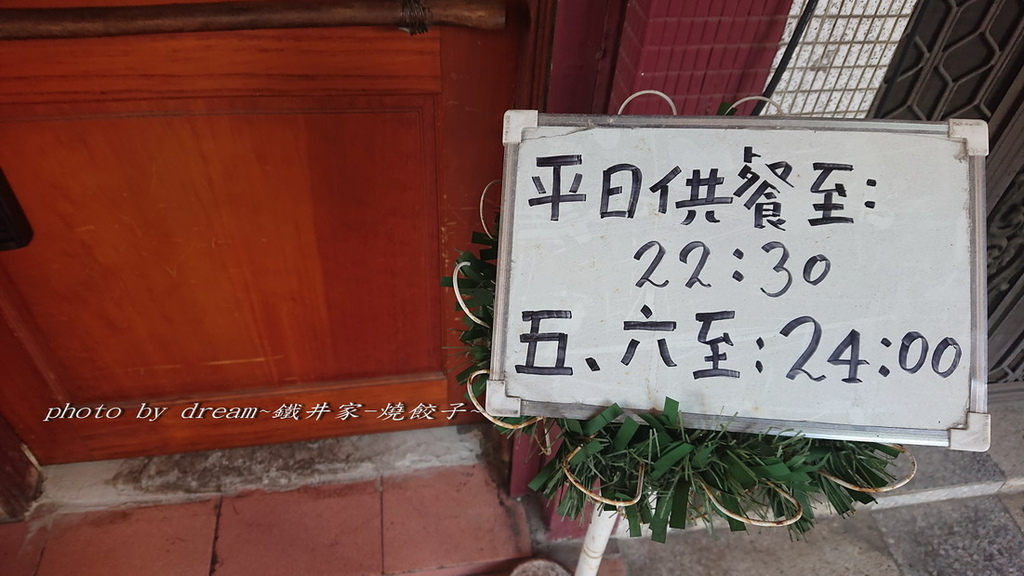 平日供餐至:
22:30
五、六至:24:00
photo by dream~鐵井家-燒餃子~